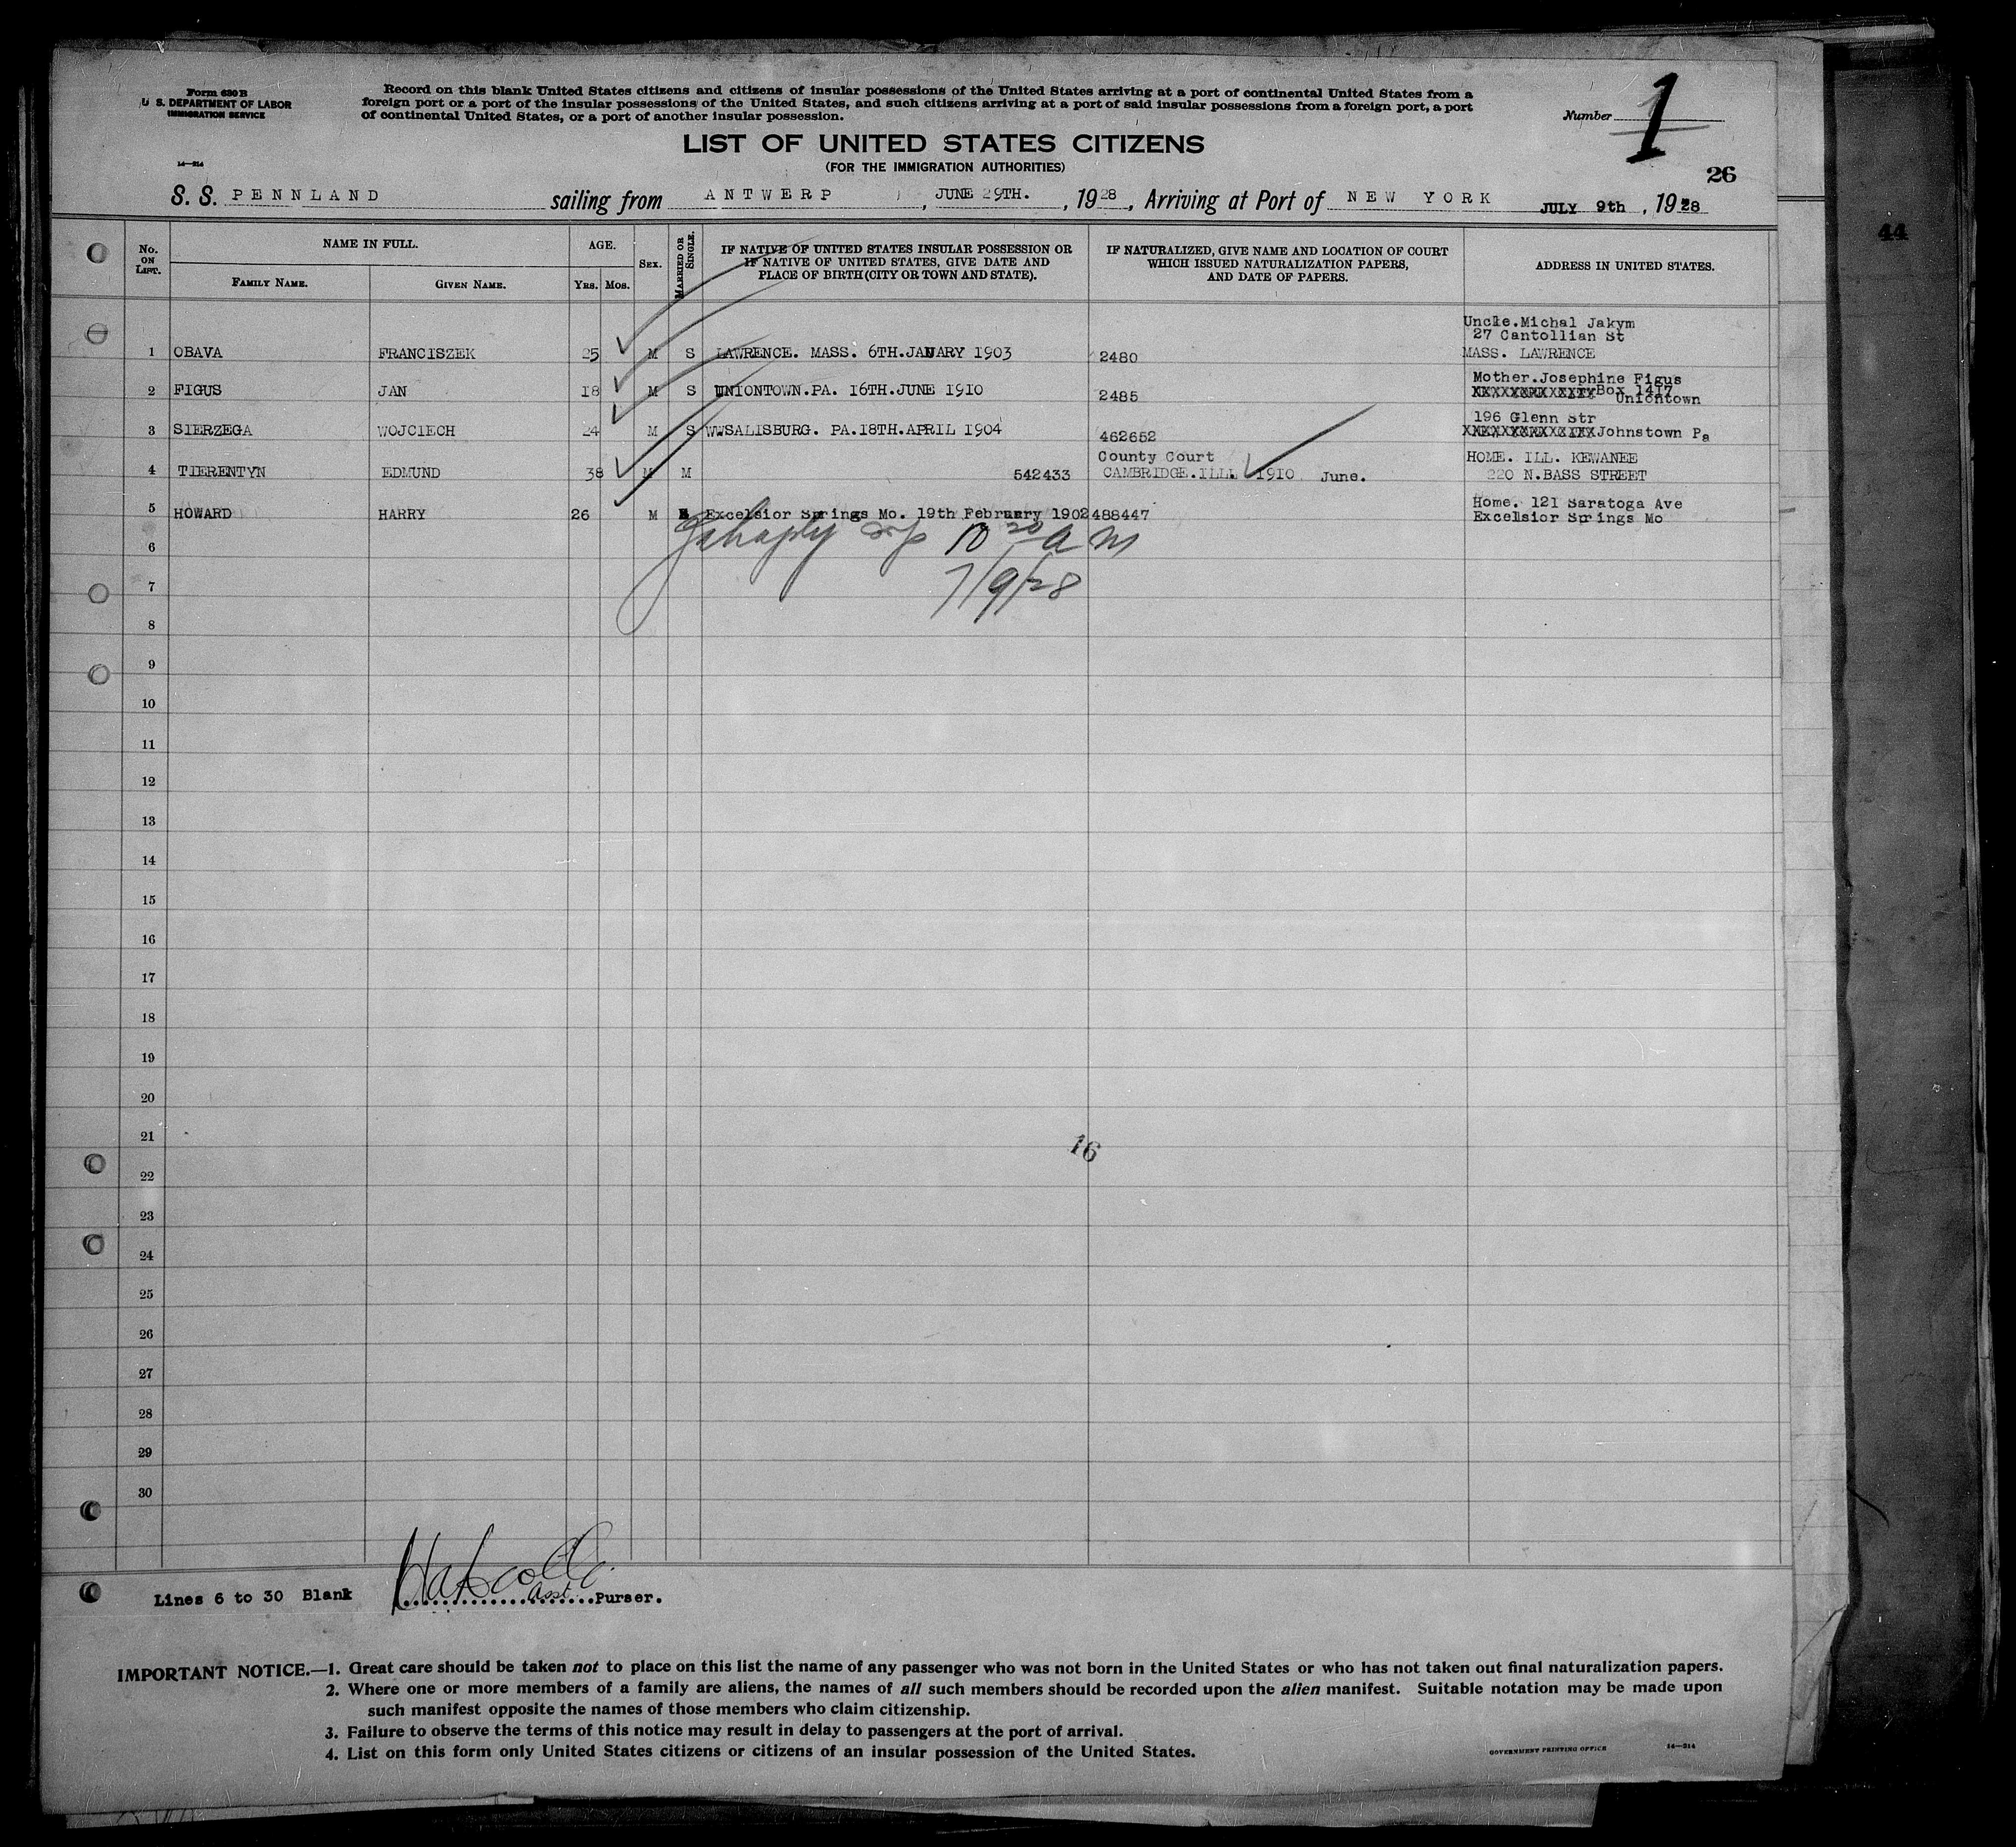 Form 630 B
U. S. DEPARTMENT OF LABOR
IMMIGRATION SERVICE
14—214
Record on this blank United States citizens and citizens of insular possessions of the United States arriving at a port of continental United States from a
foreign port or a port of the insular possessions of the United States, and such citizens arriving at a port of said insular possessions from a foreign port, a port
of continental United States, or a port of another insular possession.
Number 1
LIST OF UNITED STATES CITIZENS
(FOR THE IMMIGRATION AUTHORITIES)
26
S. S. PENNLAND sailing from ANTWERP, JUNE 29TH., 1928, Arriving at Port of NEW YORK JULY 9th, 1928
44
No. ON LIST. NAME IN FULL. FAMILY NAME. GIVEN NAME. AGE. YRS. MOS. SEX. MARRIED OR SINGLE.
IF NATIVE OF UNITED STATES INSULAR POSSESSION OR
IF NATIVE OF UNITED STATES, GIVE DATE AND
PLACE OF BIRTH (CITY OR TOWN AND STATE).
IF NATURALIZED, GIVE NAME AND LOCATION OF COURT
WHICH ISSUED NATURALIZATION PAPERS,
AND DATE OF PAPERS.
ADDRESS IN UNITED STATES.
Uncle.Michal Jakym
27 Cantollian St
1 OBAVA FRANCISZEK 25 M S LAWRENCE. MASS. 6TH.JANUARY 1903 2480 MASS. LAWRENCE
Mother.Josephine Figus
2 FIGUS JAN 18 M S UNIONTOWN.PA. 16TH.JUNE 1910 2485 Box 1417
Uniontown
196 Glenn Str
3 SIERZEGA WOJCIECH 24 M S WWSALISBURG. PA.18TH.APRIL 1904 462652 Johnstown Pa
County Court HOME. ILL. KEWANEE
4 TIERENTYN EDMUND 38 M M 542433 CAMBRIDGE.ILL. 1910 June. 220 N.BASS STREET
Home. 121 Saratoga Ave
5 HOWARD HARRY 26 M Excelsior Springs Mo. 19th February 1902 488447 Excelsior Springs Mo
6
10 20 a m
7
7/9/28
8
9
10
11
12
13
14
15
16
17
18
19
20
21
16
22
23
24
25
26
27
28
29
30
Lines 6 to 30 Blank Asst. Purser.
IMPORTANT NOTICE.—1. Great care should be taken not to place on this list the name of any passenger who was not born in the United States or who has not taken out final naturalization papers.
2. Where one or more members of a family are aliens, the names of all such members should be recorded upon the alien manifest. Suitable notation may be made upon
such manifest opposite the names of those members who claim citizenship.
3. Failure to observe the terms of this notice may result in delay to passengers at the port of arrival.
4. List on this form only United States citizens or citizens of an insular possession of the United States.
GOVERNMENT PRINTING OFFICE 14—214